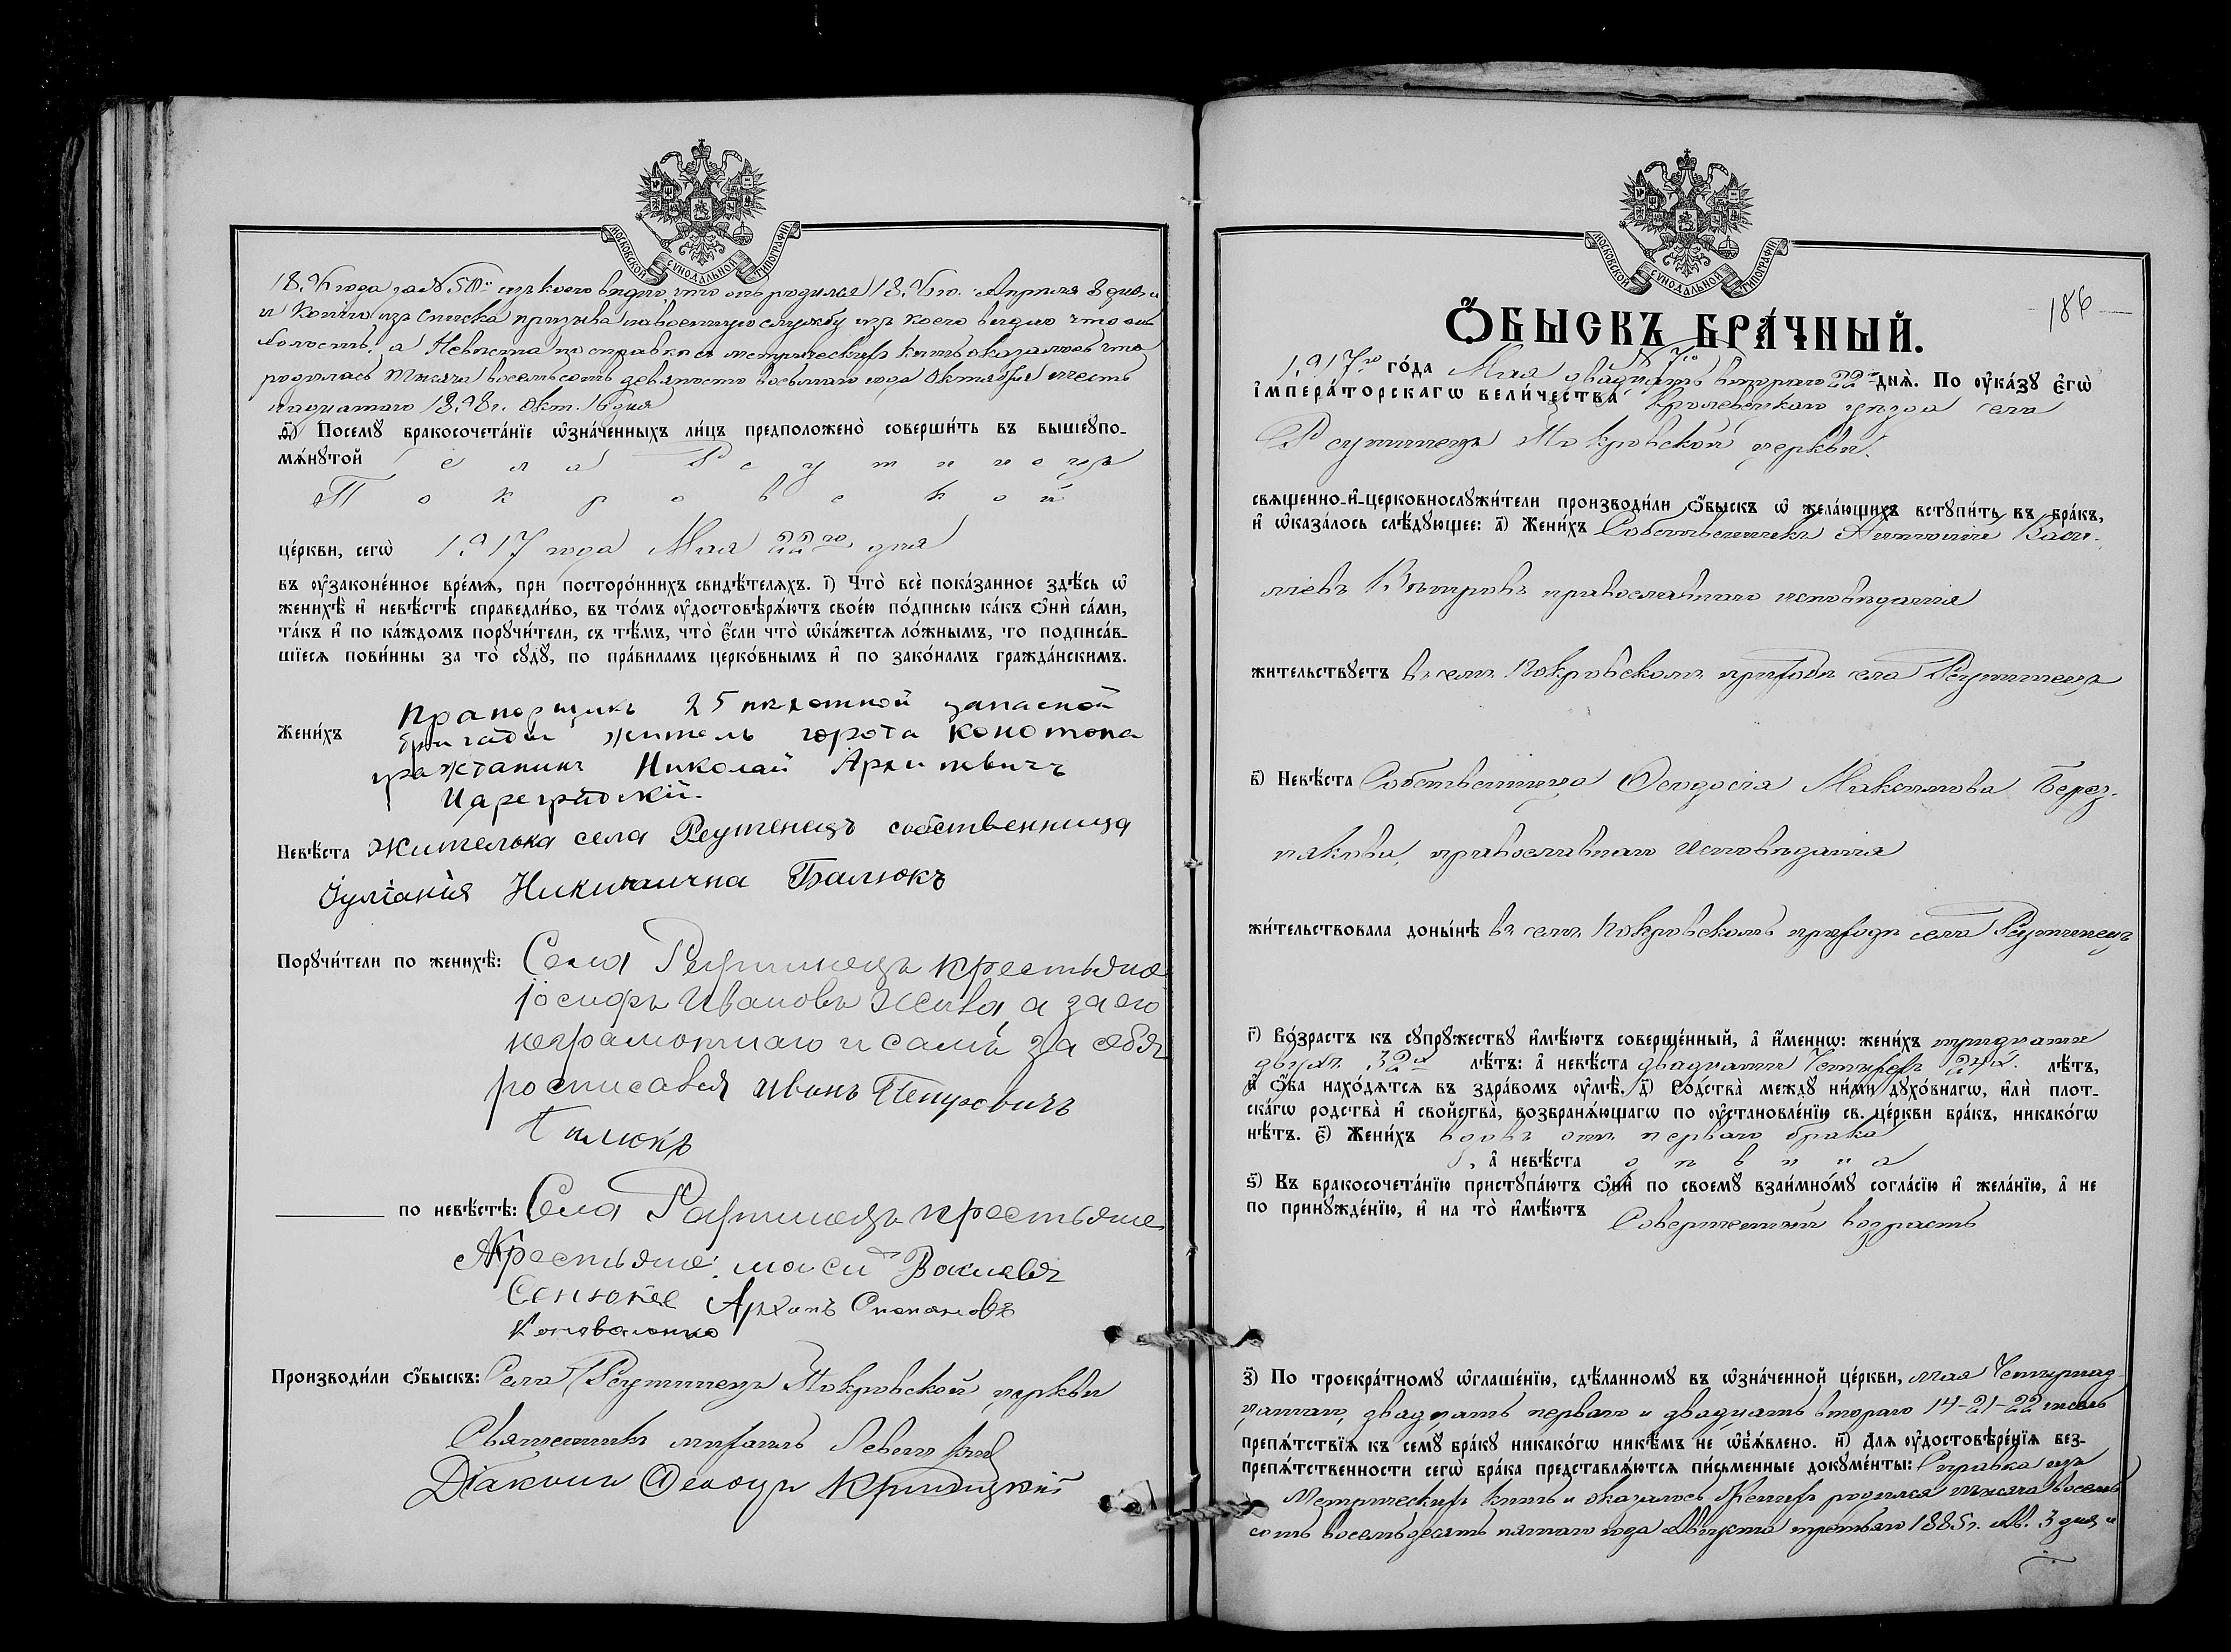 МОСКОВСКОЙ СѴНОДАЛЬНОЙ ТИПОГРАФІИ
года за № 50 изъ коего видно, что онъ родился Апреля 8 дня,
и Копию изъ списка призыва на военную службу изъ коего видно что онъ
холостъ, а Невеста по справке съ метрическихъ книгъ оказалось что
родилась тысяча восемьсотъ девяносто восьмаго года Октября шесть
надцатаго 1898 г. Окт. 16 дня
ѳ҃) Посемꙋ бракосочета́нїе ѡ҆зна́ченныхъ ли́цъ предположено̀ соверши́ть въ вышеꙋпо-
мѧ́нꙋтой села Реутинецъ
Покровской
це́ркви, сегѡ̀ 1917 года Мая 22го дня
въ ᲂу҆законе́нное вре́мѧ, при посторо́ннихъ свидѣ́телѧхъ. і҃) Что̀ всѐ пока́занное здѣ́сь ѡ҆
женихѣ̀ и҆ невѣ́стѣ справедли́во, въ то́мъ ᲂу҆достовѣрѧ́ютъ свое́ю по́дписью ка́къ ѻ҆нѝ са́ми,
та́къ и҆ по ка́ждомъ порꙋчи́тели, съ тѣ́мъ, что̀ є҆́сли что̀ ѡ҆ка́жетсѧ ло́жнымъ, то подписа́в-
шїесѧ пови́нны за то̀ сꙋдꙋ̀, по пра́виламъ церко́внымъ и҆ по зако́намъ гражда́нскимъ.
Жени́хъ Прапорщикъ 25 пехотной запасной
бригады житель горота Конотопа
гражтанинъ Николай Архиповичъ
Цареградский.
Невѣ́ста Жителька села Реутенецъ собственница
Іулїанія Никитична Балюкъ
Порꙋчи́тели по женихѣ̀: Села Реутинецъ крестьяне
Іосифъ Ивановъ а за его
неграмотнаго и самъ за себя
росписався Иванъ
по невѣ́стѣ: Села Реутинецъ крестьяне
Крестьяне
Архипъ Степановъ
Коноваленко
Производи́ли ѻ҆́быскъ: Села Реутинецъ Покровской церкви
Священникъ Михаилъ
Діаконъ Феодоръ Криницкій
МОСКОВСКОЙ СѴНОДАЛЬНОЙ ТИПОГРАФІИ
186
Ѻ҆́БЫСКЪ БРА́ЧНЫЙ.
1917го го́да Мая двадцать втораго 22го днѧ̀. По ᲂу҆ка́зꙋ є҆гѡ̀
і҆мпера́торскагѡ вели́чества Кролевецкаго уезда села
Реутинецъ Покровской церкви.
свѧщенно-и҆-церковнослꙋжи́тели производи́ли ѻ҆́быскъ ѡ҆ жела́ющихъ встꙋпи́ть въ бра́къ,
и҆ ѡ҆каза́лось слѣ́дꙋющее: а҃) Жени́хъ Собственникъ Антоній Васи-
ліевъ Ветровъ православнаго исповеданія
жи́тельствꙋетъ въ селе Покровскомъ приходе села Реутинецъ
в҃) Невѣ́ста Собственница Феодосія Максимова Берез-
някова, православнаго исповеданія
жи́тельствовала доны́нѣ въ селе Покровскомъ приходе села Реутинецъ
г҃) Во́зрастъ къ сꙋпрꙋ́жествꙋ и҆мѣ́ютъ соверше́нный, а҆ и҆́меннѡ: жени́хъ тридцати
двухъ 32х лѣ́тъ: а҆ невѣ́ста двадцати Четырехъ 24х. лѣ́тъ,
и҆ ѻ҆́ба нахо́дѧтсѧ въ здра́вомъ ᲂу҆мѣ̀. д҃) Ро́дства̀ междꙋ̀ ни́ми дꙋхо́внагѡ, и҆лѝ плот-
ска́гѡ родства̀ и҆ свойства̀, возбранѧ́ющагѡ по ᲂу҆становле́нїю св. це́ркви бра́къ, никако́гѡ
нѣ́тъ. є҃) Жени́хъ вдовъ отъ перваго брака
, а҆ невѣ́ста девица
ѕ҃) Къ бракосочета́нїю пристꙋпа́ютъ ѻ҆нѝ по своемꙋ̀ взаи́мномꙋ согла́сїю и҆ жела́нїю, а҆ не
по принꙋжде́нїю, и҆ на то̀ и҆мѣ́ютъ Совершенный возрастъ
з҃) По троекра́тномꙋ ѡ҆глаше́нїю, сдѣ́ланномꙋ въ ѡ҆зна́ченной це́ркви, мая Четырнад-
цатаго, двадцать перваго и двадцать втораго 14-21-22 числъ
препѧ́тствїѧ къ семꙋ̀ бра́кꙋ никако́гѡ никѣ́мъ не ѡ҆б̾ѧ́влено. и҃) Длѧ ᲂу҆достовѣре́нїѧ без-
препѧ́тственности сегѡ̀ бра́ка представлѧ́ютсѧ пи́сьменные докꙋме́нты: Справка изъ
Метрическихъ книгъ и оказалось Женихъ родился тысяча восемь
сотъ восемьдесятъ пятаго года Августа третьяго 1885 г. Ав. 3 дня, и